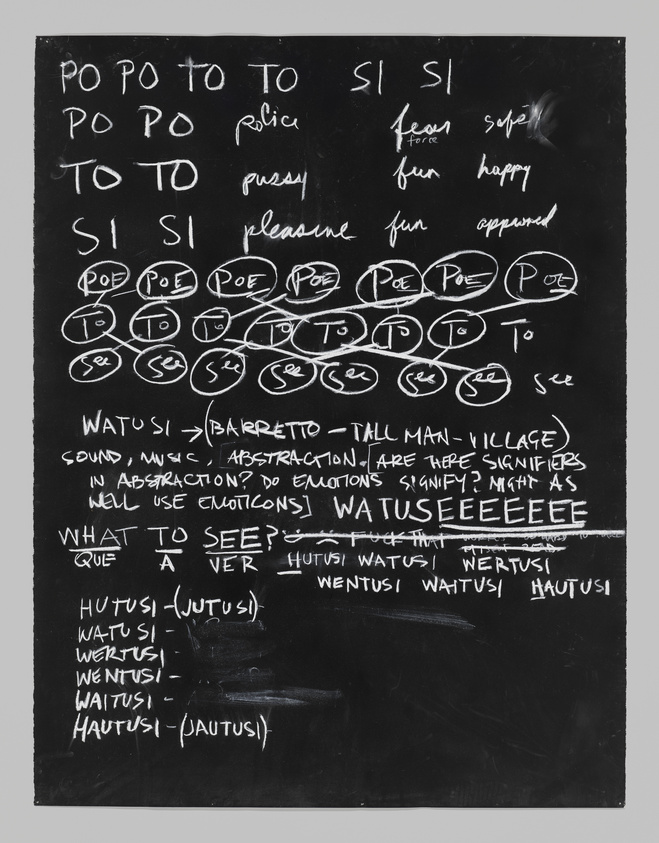 PO PO TO TO SI SI
PO PO police fear safe
force
TO TO pussy fun happy
SI SI pleasure fun approved
POE POE POE POE POE POE POE
TO TO TO TO TO TO TO TO
See See See See See See See See
WATUSI → (BARRETTO - TALL MAN - VILLAGE)
SOUND, MUSIC, ABSTRACTION. [ARE THERE SIGNIFIERS
IN ABSTRACTION? DO EMOTIONS SIGNIFY? MIGHT AS
WELL USE EMOTICONS] WATUSEEEEEEEE
WHAT TO SEE? FUCK THAT
QUE A VER HUTUSI WATUSI WERTUSI
WENTUSI WAITUSI HAUTUSI
HUTUSI - (JUTUSI)
WATUSI -
WERTUSI
WENTUSI -
WAITUSI -
HAUTUSI - (JAUTUSI)